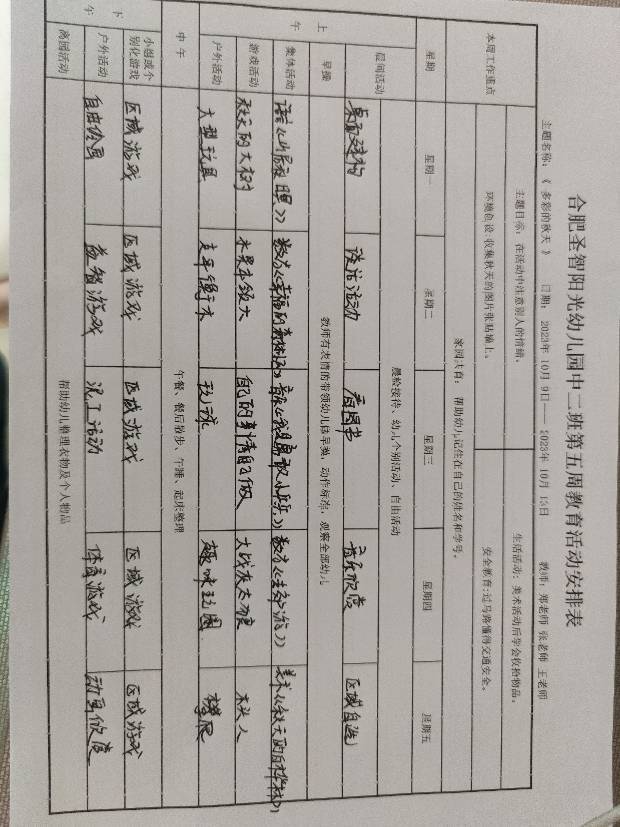 合肥圣智阳光幼儿园中二班第五周教育活动安排表
主题名称：《 多彩的秋天 》 日期： 2023年 10月 9日—— 2023年 10月 13日 教师：郑老师 张老师 王老师
本周工作重点
主题目标：在活动中注意别人的情绪。
生活活动：美术活动后学会收拾物品。
环境创设：收集秋天的图片张贴墙上。
安全教育：过马路懂得交通安全。
家园共育： 帮助幼儿记住在自己的姓名和学号。
星期 星期一 星期二 星期三 星期四 星期五
上午
晨间活动
晨检接待、幼儿个别活动、自由活动
桌面建构 谈话活动 看图书 音乐欣赏 区域自选
早操 教师有表情的带领幼儿做早操，动作标准，观察全部幼儿
集体活动 语言 数学 音乐 数学 美术《秋天的白桦林》
游戏活动 秋天的大树 水果本领大 自己的事情自己做 大战灰太狼 木头人
户外活动 大型玩具 玩球 趣味主圈
中午 午餐、餐后散步、午睡、起床整理
下午
小组或个别化游戏 区域游戏 区域游戏 区域游戏 区域游戏 区域游戏
户外活动 自由绘画 益智游戏 泥工活动 体育游戏 动画欣赏
离园活动 帮助幼儿整理衣物及个人物品